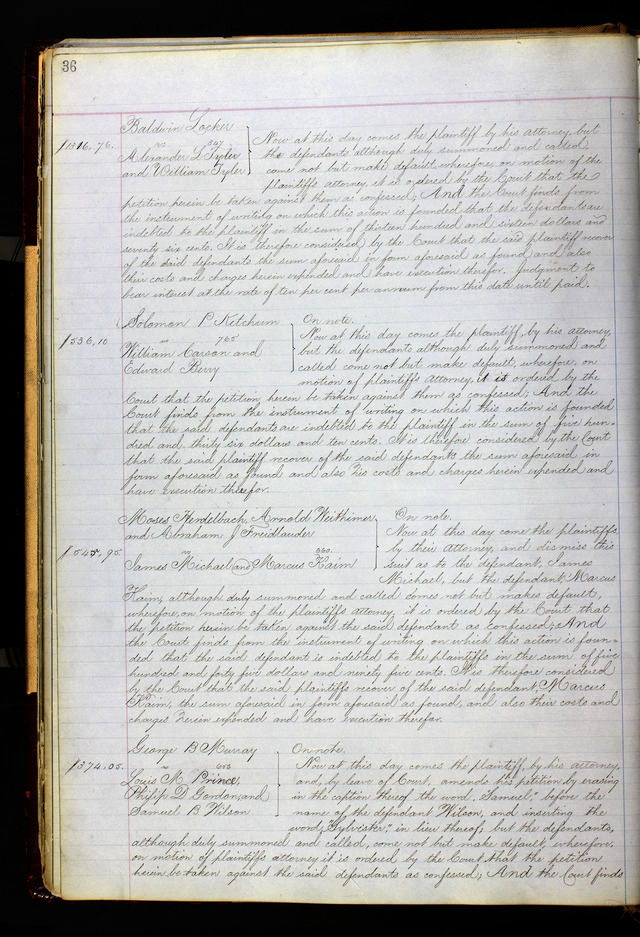 36
Baldwin Locker
$1316,76. vs. 567 Now at this day comes the plaintiff by his attorney, but
Alexander L Tyler the defendants although duly summoned and called,
and William Tyler come not but make default, wherefore, on motion of the
plaintiffs attorney, it is ordered by the Court that the
petition herein be taken against them as confessed; And the Court finds from
the instrument of writing on which this action is founded that the defendants are
indebted to the plaintiff in the sum of thirteen hundred and sixteen dollars and
seventy six cents. It is therefore considered by the Court that the said plaintiff recover
of the said defendants the sum aforesaid in form aforesaid as found and also
their costs and charges herein expended and have execution therefor. Judgment to
bear interest at the rate of ten per cent per annum from this date until paid.
Solomon P. Ketchum On note.
$536,10 vs 765 Now at this day comes the plaintiff, by his attorney,
William Carson and but the defendants although duly summoned and
Edward Berry called come not but make default, wherefore, on
motion of plaintiff's attorney, it is ordered by the
Court that the petition herein be taken against them as confessed; And the
Court finds from the instrument of writing on which this action is founded
that the said defendants are indebted to the plaintiff in the sum of five hun-
dred and thirty six dollars and ten cents. It is therefore considered by the Court
that the said plaintiff recover of the said defendants the sum aforesaid in
form aforesaid as found and also his costs and charges herein expended and
have execution therefor.
Moses Heidelbach, Arnold Wertheimer On note.
and Abraham J Freidlauder Now at this day come the plaintiffs
$545,95. vs 660. by their attorney, and dismiss this
James Michael and Marcus Haim suit as to the defendant, James
Michael, but the defendant, Marcus
Haim, although duly summoned and called comes not but makes default,
wherefore, on motion of the plaintiffs attorney, it is ordered by the Court that
the petition herein be taken against the said defendant as confessed; And
the Court finds from the instrument of writing on which this action is foun-
ded that the said defendant is indebted to the plaintiffs in the sum of five
hundred and forty five dollars and ninety five cents. It is therefore considered
by the Court that the said plaintiffs recover of the said defendant, Marcus
Haim, the sum aforesaid in form aforesaid as found, and also their costs and
charges herein expended and have execution therefor.
George B Murray On note.
$374.05. vs 683 Now at this day comes the plaintiff, by his attorney,
Louis M. Prince, and, by leave of Court, amends his petition by erasing
Philip D Gordon, and in the caption thereof the word, "Samuel," before the
Samuel B Wilson name of the defendant Wilson, and inserting the
word, "Sylvester," in lieu thereof; but the defendants,
although duly summoned and called, come not but make default, wherefore,
on motion of plaintiffs attorney it is ordered by the Court that the petition
herein be taken against the said defendants as confessed; And the Court finds